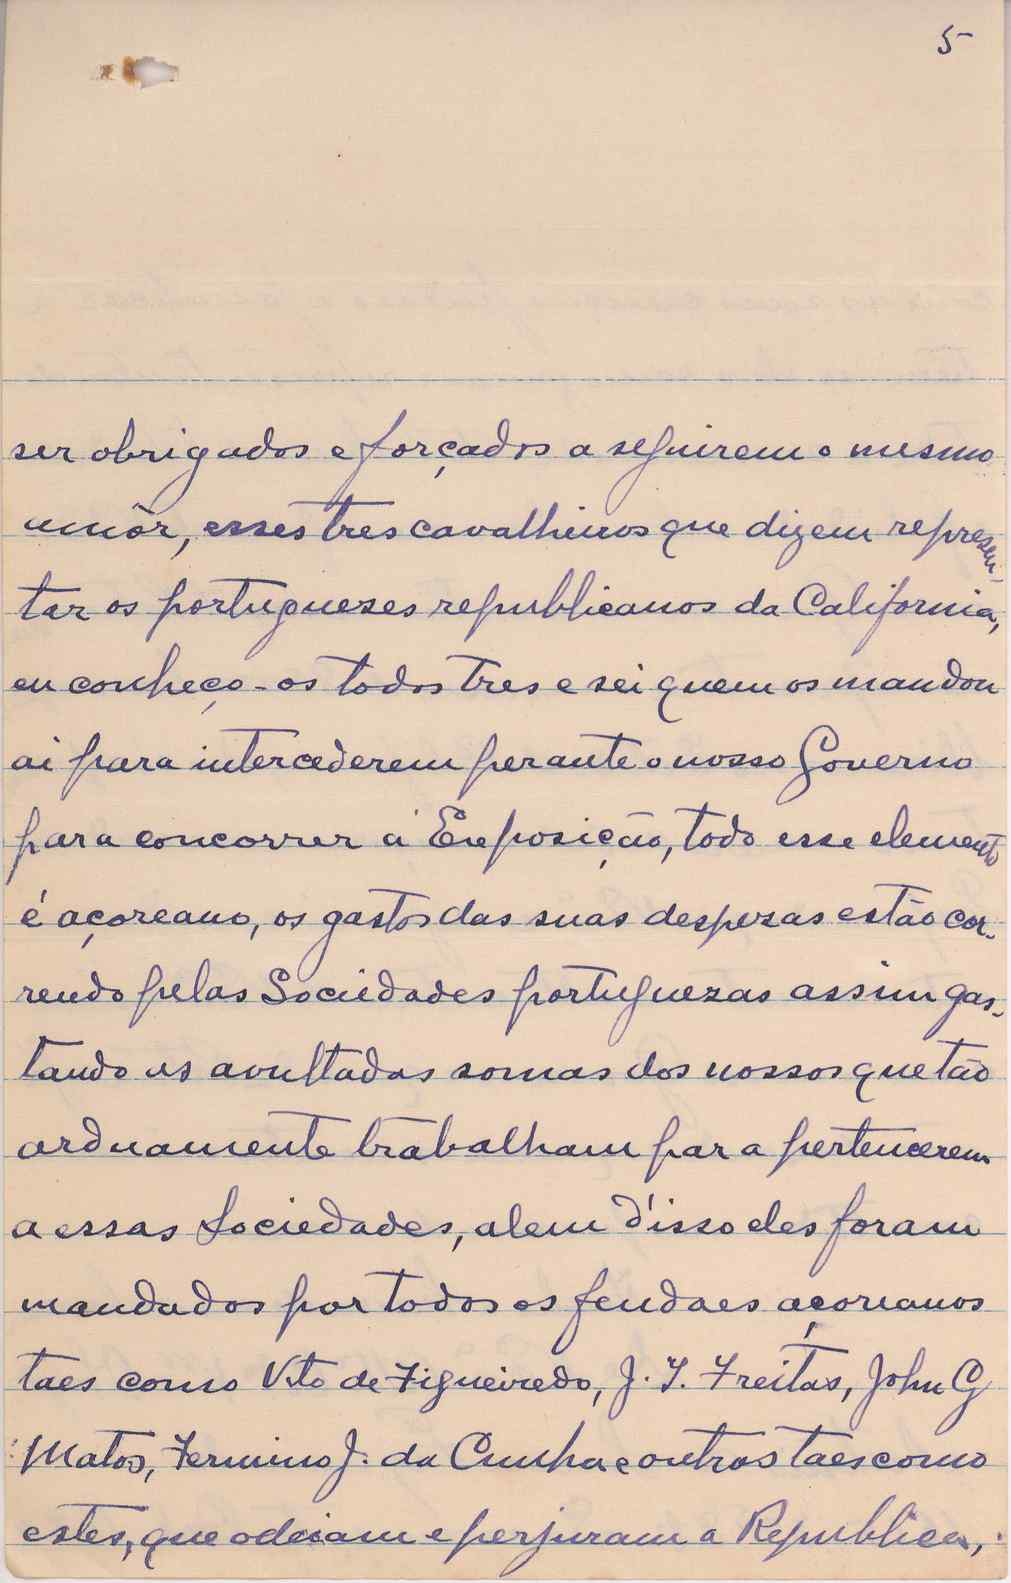 5
ser obrigados e forçados a seguirem o mesmo
amôr, esses tres cavalheiros que dizem represen-
tar os portugueses republicanos da California,
eu conheço-os todos tres e sei quem os mandou
ai para intercederem perante o nosso Governo
para concorrer á Exposição, todo esse elemento
é açoreano, os gastos das suas despezas estão cor-
rendo pelas Sociedades portuguezas assim gas-
tando as avultadas somas dos nossos que tão
arduamente trabalham para pertencerem
a essas Sociedades, alem d'isso eles foram
mandados por todos os feudaes açoreanos
taes como Vto de Figueiredo, J. F. Freitas, John G
Matos, Fermino J. da Cunha e outros taes como
estes, que odeiam e perjuram a Republica,